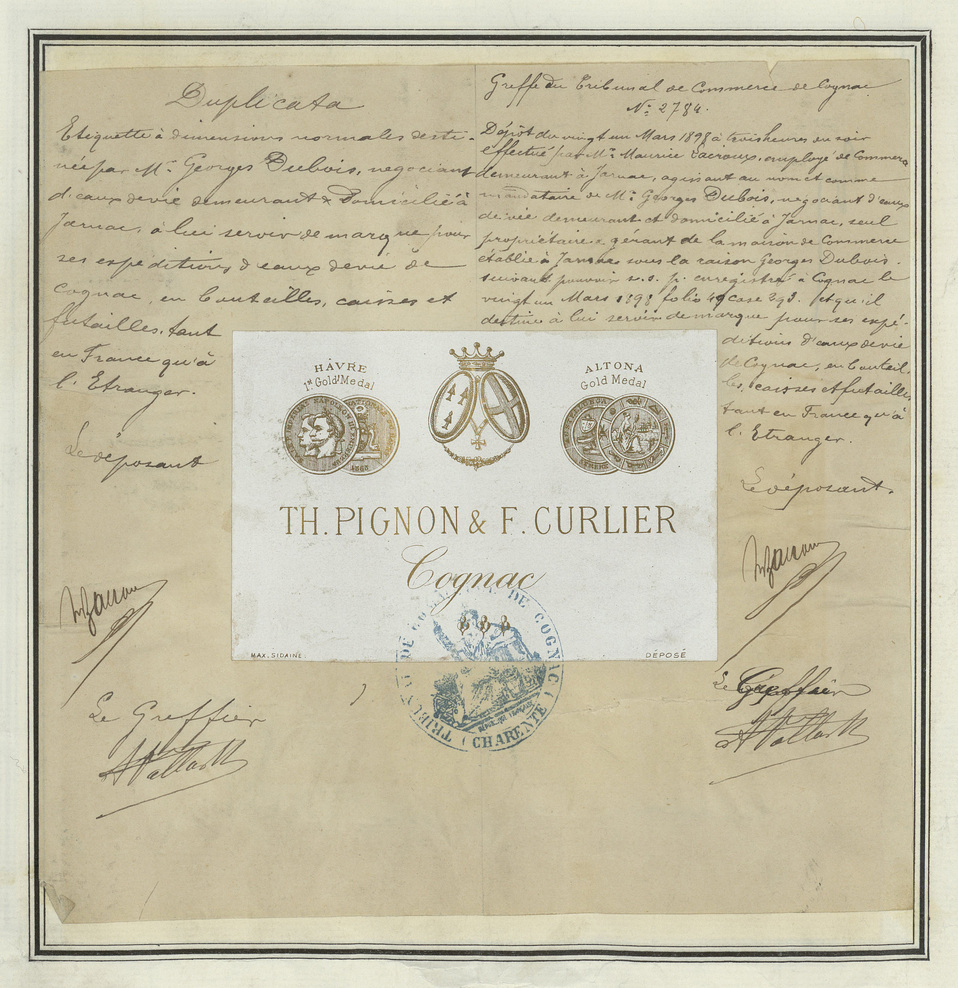 Duplicata
Etiquette à dimensions normales desti-
née par Mr. Georges Dubois, négociant
d'eaux de vie demeurant & Domicilié à
Jarnac, à lui servir de marque pour
ses expéditions d'eaux de vie de
Cognac, en bouteilles, caisses et
futailles, tant
en France qu'à
l'Etranger.
Le déposant
Le Greffier
Greffe du Tribunal de Commerce de Cognac
No. 2784.
Dépôt du vingt un Mars 1898 à trois heures du soir
effectué par Mr. Maurice Lacroux, employé de Commerce
demeurant à Jarnac, agissant au nom et comme
mandataire de Mr. Georges Dubois, négociant d'eaux
de vie demeurant et domicilié à Jarnac, seul
propriétaire & gérant de la maison de Commerce
établie à Jarnac sous la raison Georges Dubois.
suivant pouvoir s.s. p. enregistré à Cognac le
vingt un Mars 1898 folio 49 case 293. et qu'il
destine à lui servir de marque pour ses expé-
ditions d'eaux de vie
de Cognac, en bouteil-
les, caisses et futailles
tant en France qu'à
l'Etranger.
Le déposant.
Le Greffier
HÂVRE
1st Gold Medal
ALTONA
Gold Medal
TH. PIGNON & F. CURLIER
Cognac
MAX. SIDAINE
DÉPOSÉ
TRIBUNAL DE COMMERCE DE COGNAC (CHARENTE)